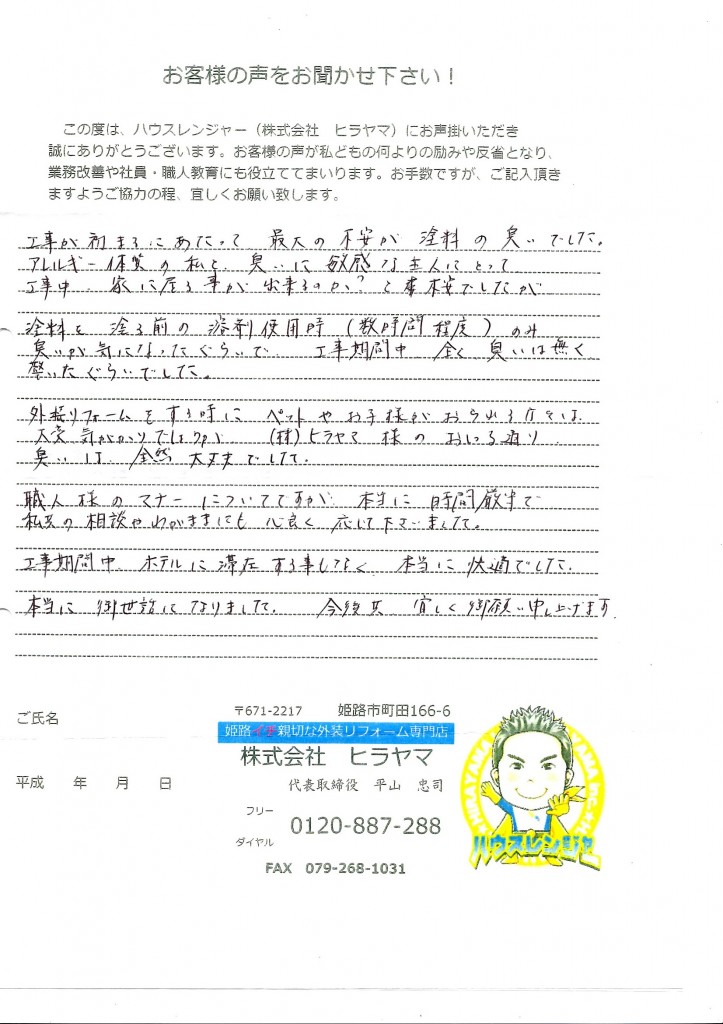 お客様の声をお聞かせ下さい！
この度は、ハウスレンジャー（株式会社　ヒラヤマ）にお声掛いただき
誠にありがとうございます。お客様の声が私どもの何よりの励みや反省となり、
業務改善や社員・職人教育にも役立ててまいります。お手数ですが、ご記入頂き
ますようご協力の程、宜しくお願い致します。
工事が初まるにあたって 最大の不安が 塗料の臭いでした。
アレルギー体質の私と、臭いに敏感な主人にとって
工事中 家に居る事が出来るのか？と でしたが
塗料を塗る前の溶剤使用時（数時間程度）のみ
臭いが気になったぐらいで 工事期間中 全く臭いは無く
驚いたぐらいでした。
外装リフォームをする時に ペットやお子様がおられる方々は
大変気がかりでしょうが （株）ヒラヤマ様のおっしる通り
臭いは 全然大丈夫でした。
職人様のマナーについてですが 本当に時間厳守で
私共の相談やわがままにも心良く応じて下さいました。
工事期間中 ホテルに滞在する事もなく 本当に快適でした。
本当に御世話になりました。 今後共 宜しく御願い申し上げます
ご氏名
〒671-2217　姫路市町田166-6
姫路イチ親切な外装リフォーム専門店
株式会社　ヒラヤマ
平成　年　月　日
代表取締役　平山　忠司
フリー
ダイヤル
0120-887-288
FAX　079-268-1031
HIRAYAMA
ハウスレンジャー